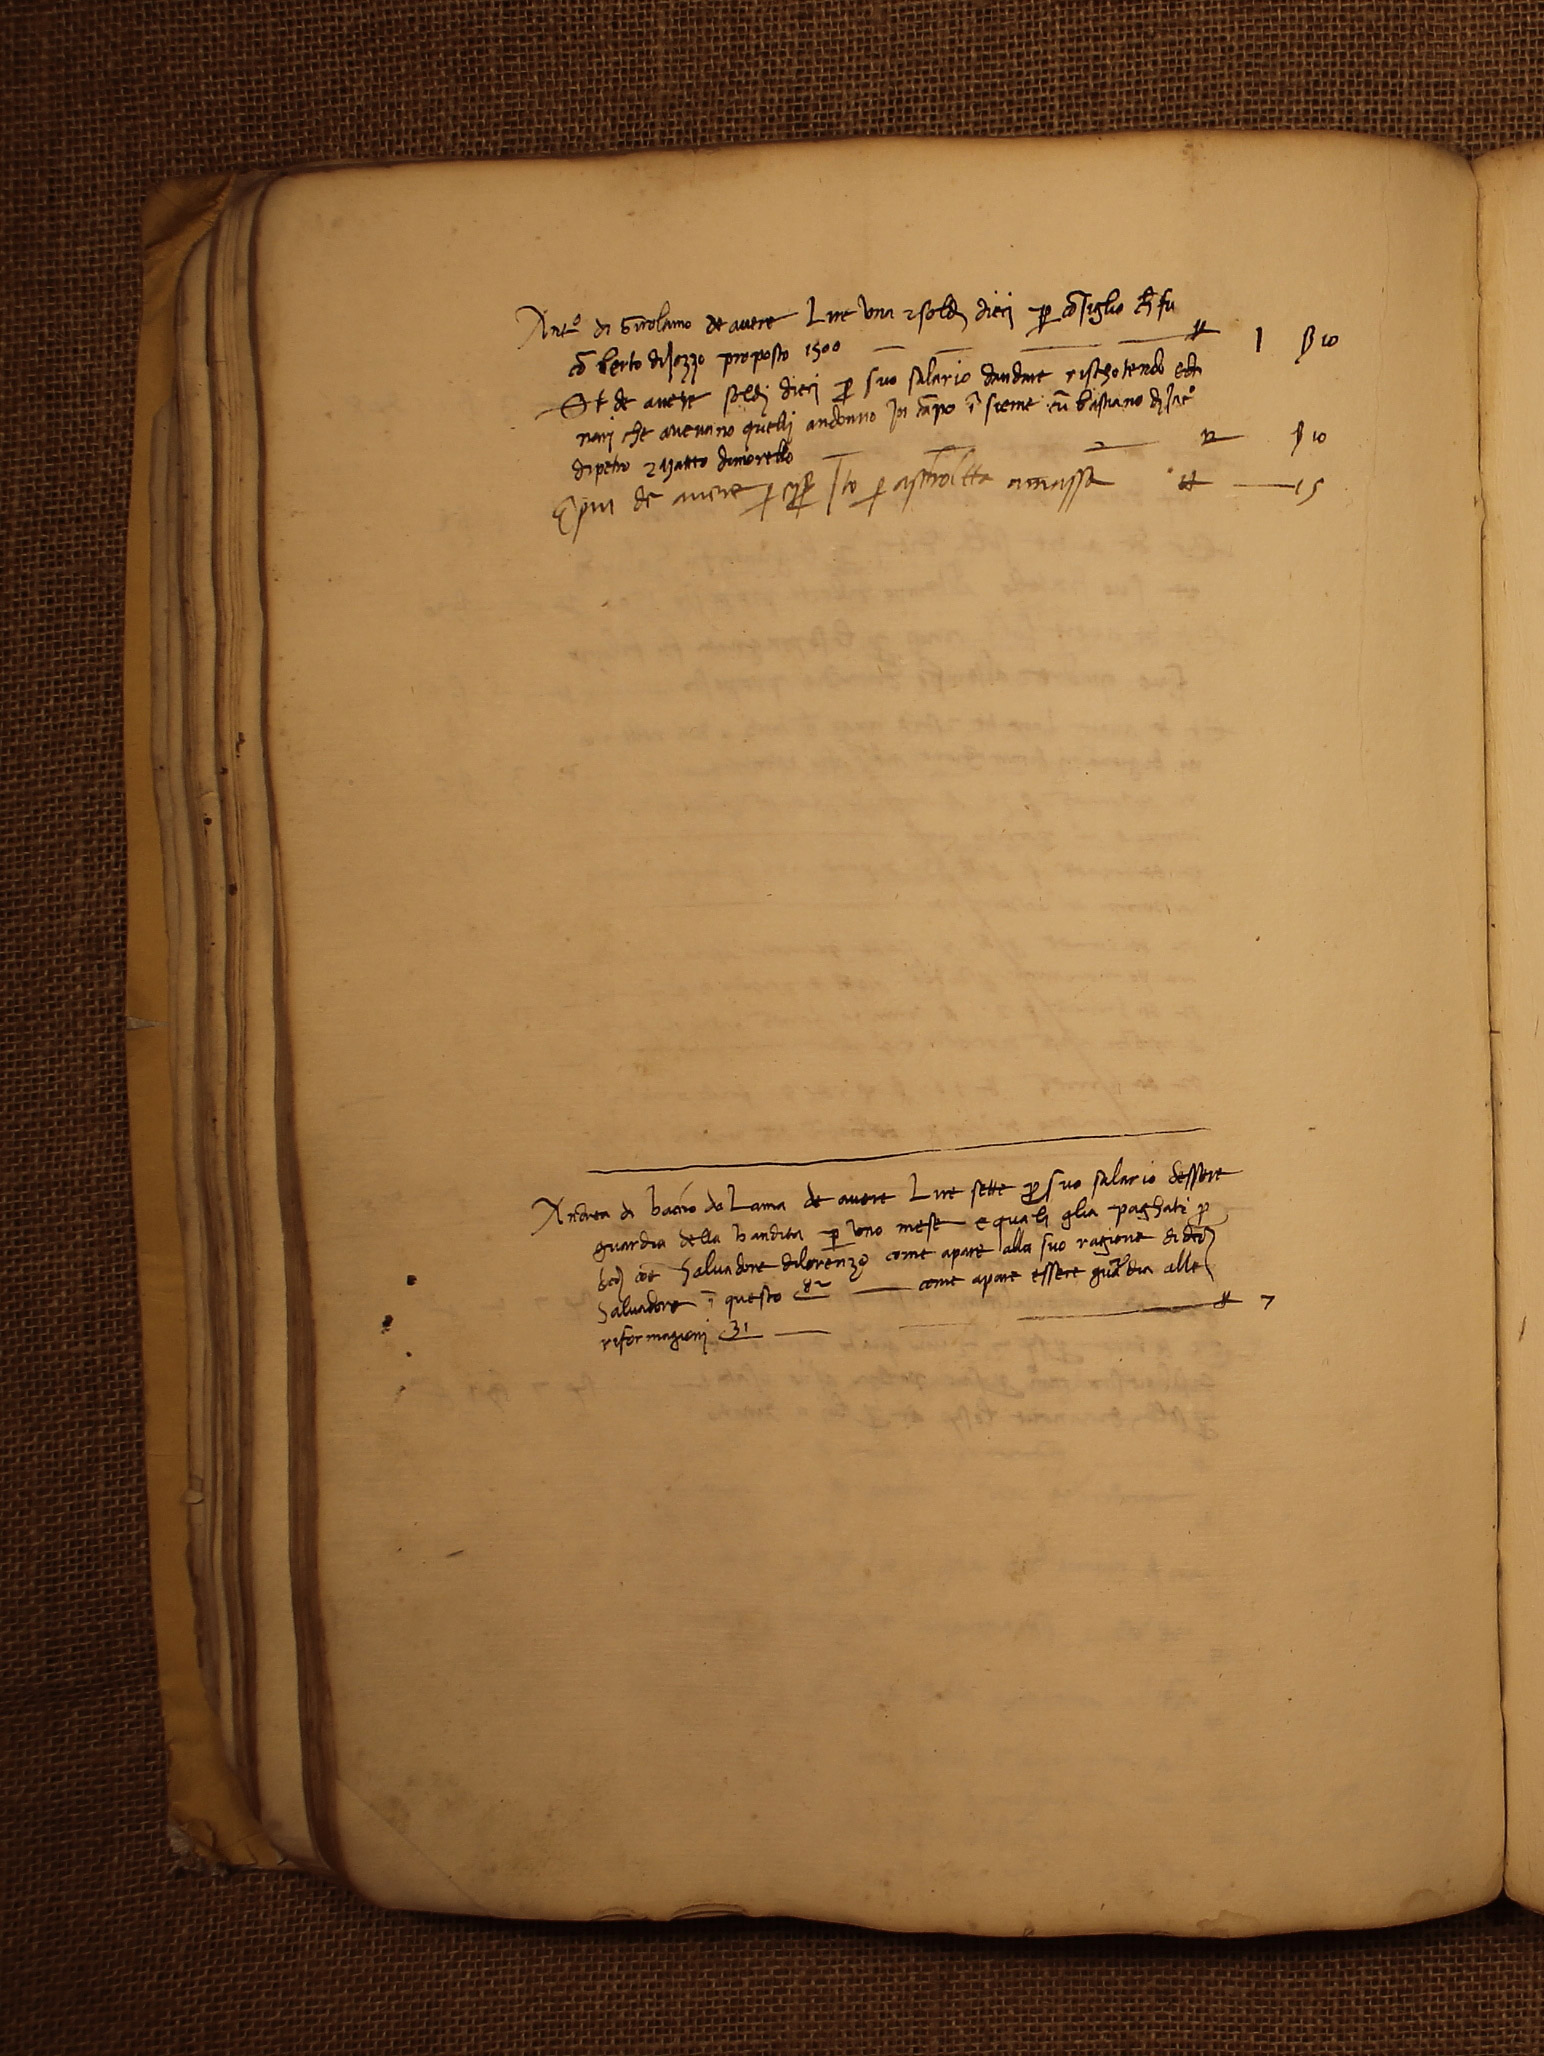 Ant.º di Girolamo de avere Lire una e soldi dieci p consiglio ch fu
cō berto di Jozzo proposto 1500 # 1 ß 10
Et de avere soldi dieci p suo salario dandare rischotendo e dn
nari che avevano quelli andonno in cāpo ī sieme cū bastiano di Jacº
di petro e Matteo di morello ß 10
E piu de avere p p # 15
Andrea di bacīo da Lama de avere Lire sette p suo salario dessere
guardia della bandita p uno mese e quali glia paghati p
noj coe Salvadore di lorenzo come apare alla suo ragione di dto
Salvadore ī questo c 82 come apare essere guardia alle
riformagionj c 31 # 7